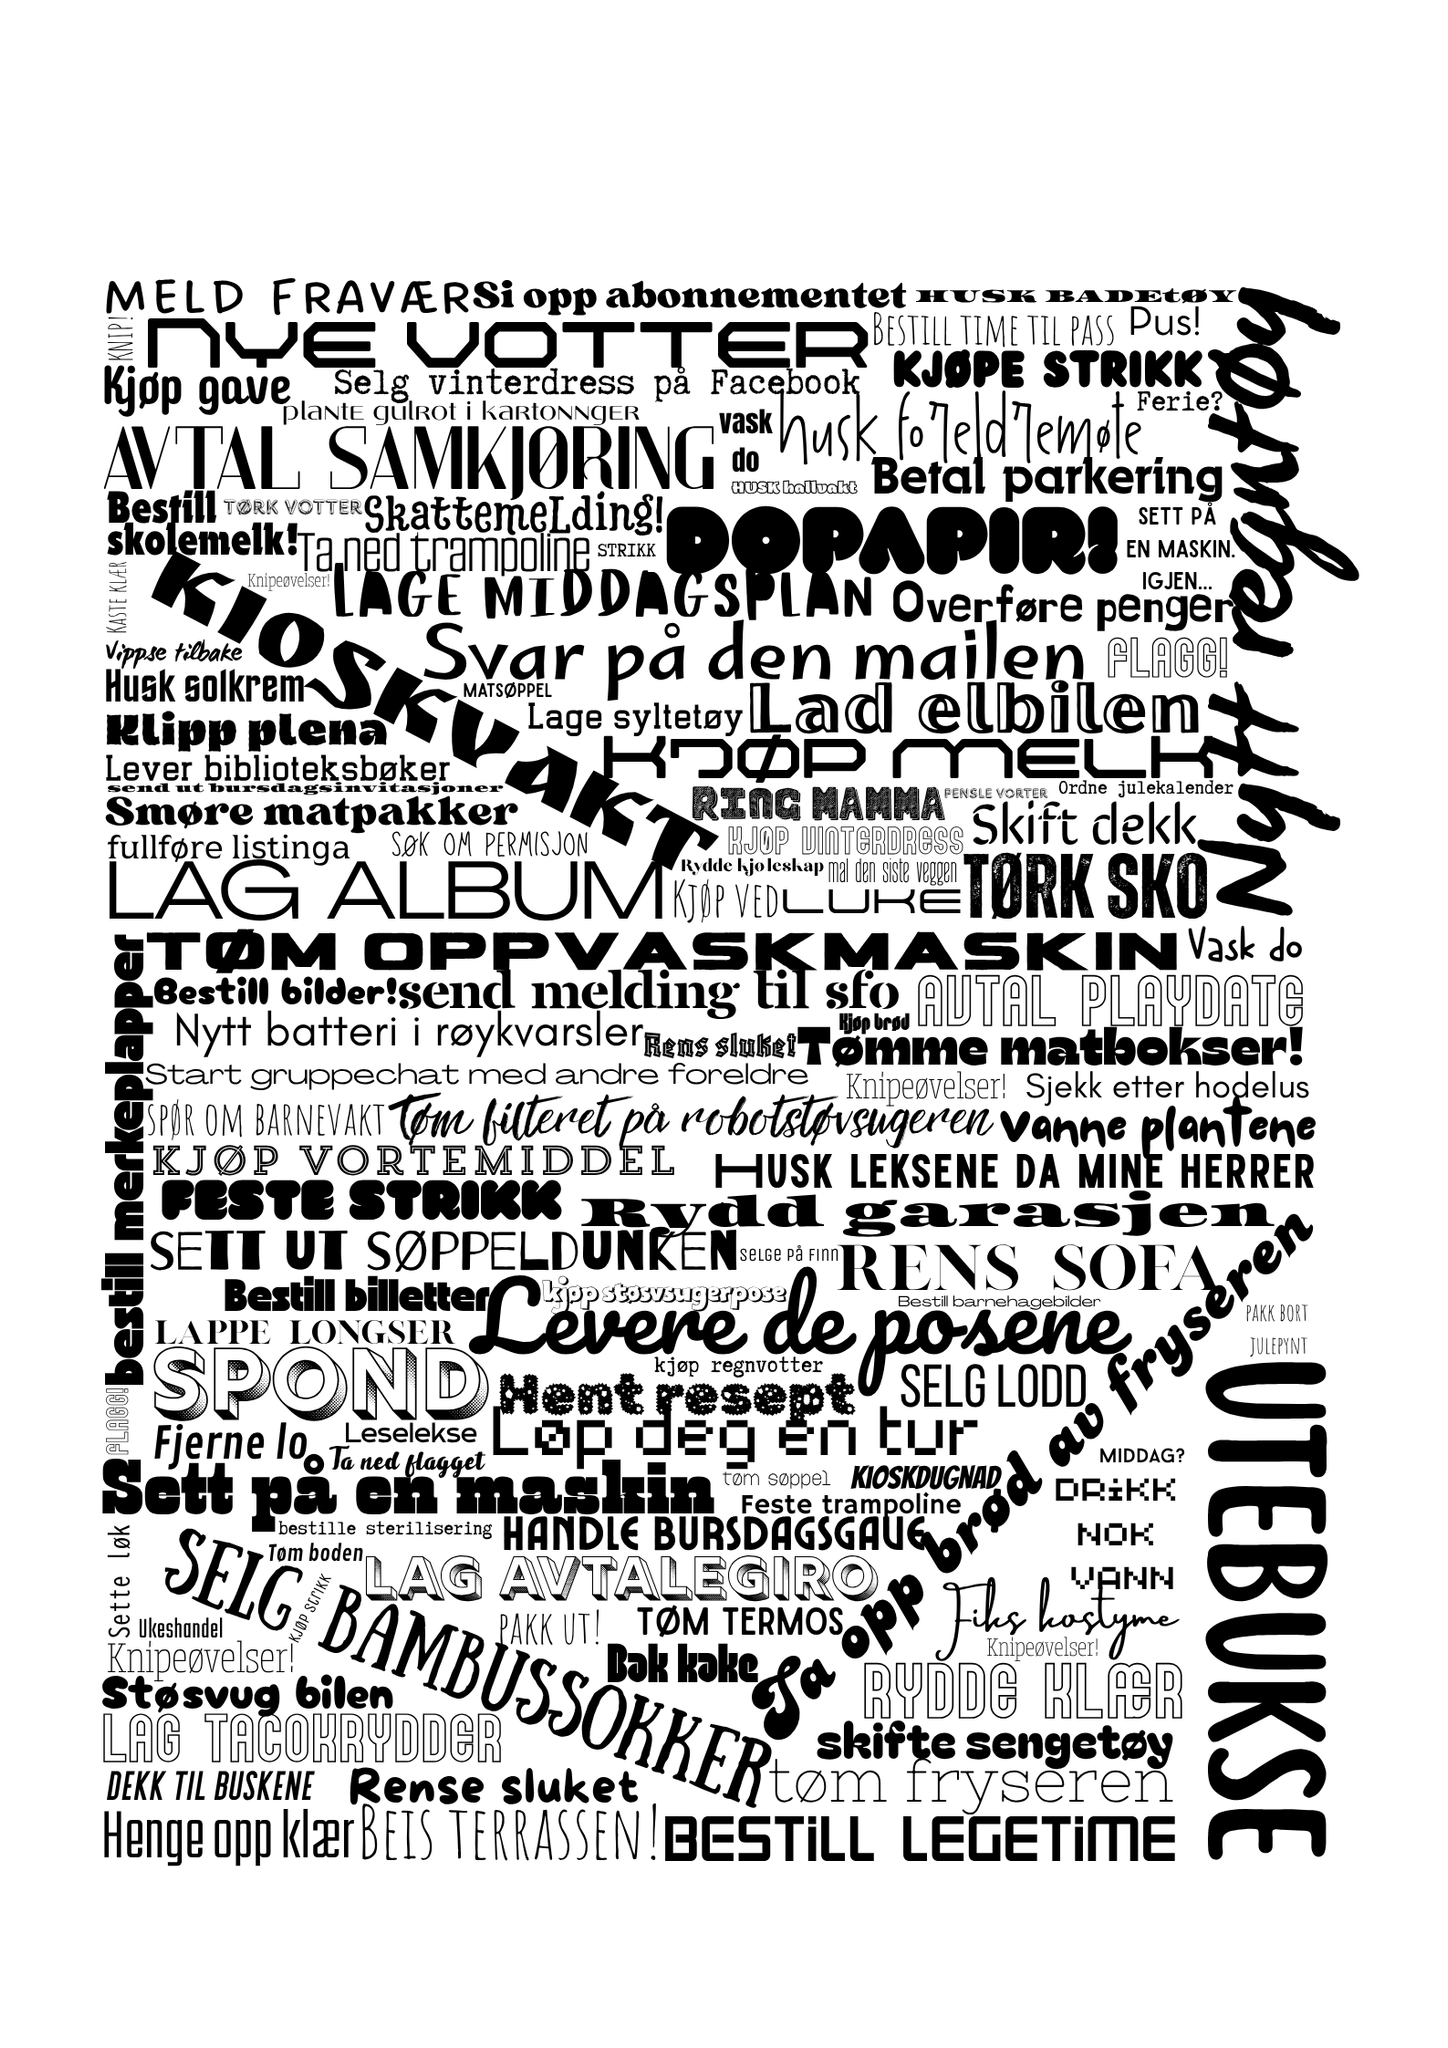 MELD FRAVÆR
Si opp abonnementet
HUSK BADEtØY
KNIP!
NYE VOTTER
BESTILL TIME TIL PASS
Pus!
Nytt regntøy
Kjøp gave
Selg vinterdress på Facebook
KJØPE STRIKK
plante gulrot i kartonnger
Ferie?
AVTAL SAMKJØRING
vask
do
husk foreldremøte
HUSK hallvakt
Betal parkering
Bestill
skolemelk!
TØRK VOTTER
SkattemeLding!
DOPAPIR!
SETT PÅ
EN MASKIN.
IGJEN...
Ta ned trampoline
STRIKK
KASTE KLÆR
KIOSKVAKT
Knipeøvelser!
LAGE MIDDAGSPLAN
Overføre penger
Vippse tilbake
Svar på den mailen
FLAGG!
Husk solkrem
MATSØPPEL
Lage syltetøy
Lad elbilen
Klipp plena
KJØP MELK
Lever biblioteksbøker
send ut bursdagsinvitasjoner
RING MAMMA
PENSLE VORTER
Ordne julekalender
Smøre matpakker
KJØP VINTERDRESS
Skift dekk
fullføre listinga
SØK OM PERMISJON
Rydde kjøleskap
mal den siste veggen
TØRK SKO
LAG ALBUM
KJØP VED
LUKE
bestill merkelapper
TØM OPPVASKMASKIN
Vask do
Bestill bilder!
send melding til sfo
AVTAL PLAYDATE
Nytt batteri i røykvarsler
Rens sluket
Kjøp brød
Tømme matbokser!
Start gruppechat med andre foreldre
Knipeøvelser!
Sjekk etter hodelus
SPØR OM BARNEVAKT
Tøm filteret på robotstøvsugeren
Vanne plantene
KJØP VORTEMIDDEL
HUSK LEKSENE DA MINE HERRER
FESTE STRIKK
Rydd garasjen
SETT UT SØPPELDUNKEN
SELGE PÅ FINN
RENS SOFA
Ta opp brød av fryseren
Bestill billetter
kjøp støsvsugerpose
Bestill barnehagebilder
Levere de posene
PAKK BORT
JULEPYNT
LAPPE LONGSER
SPOND
kjøp regnvotter
SELG LODD
UTEBUKSE
FLAGG!
Hent resept
Fjerne lo
Leselekse
Løp deg en tur
Ta ned flagget
MIDDAG?
Sett på en maskin
tøm søppel
KIOSKDUGNAD
DRiKK
NOK
VANN
Feste trampoline
Sette løk
bestille sterilisering
HANDLE BURSDAGSGAVE
SELG BAMBUSSOKKER
Tøm boden
LAG AVTALEGIRO
KJØP STRIKK
Fiks kostyme
Ukeshandel
PAKK UT!
TØM TERMOS
Knipeøvelser!
Knipeøvelser!
Bak kake
RYDDE KLÆR
Støsvug bilen
LAG TACOKRYDDER
skifte sengetøy
DEKK TIL BUSKENE
Rense sluket
tøm fryseren
Henge opp klær
BEIS TERRASSEN!
BESTiLL LEGETiME